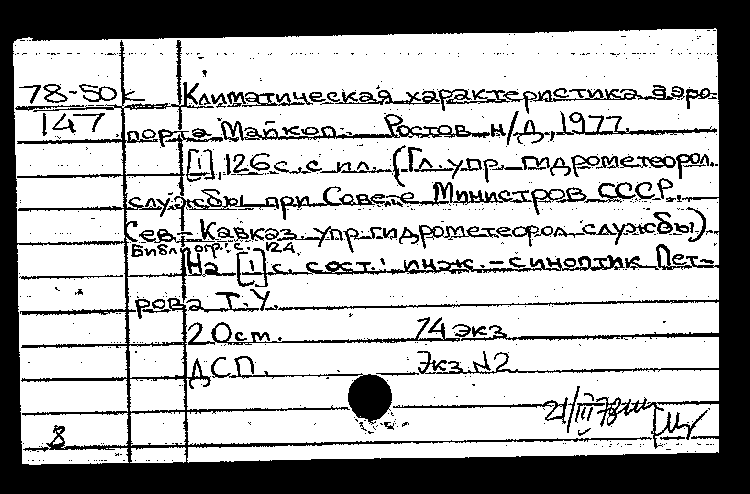 78-50к Климатическая характеристика аэро-
147 порта Майкоп. Ростов н/Д, 1977.
[1], 126 с. с ил. (Гл. упр. гидрометеорол.
службы при Совете Министров СССР.
Сев.-Кавказ. упр. гидрометеорол. службы)
Библиогр.: с. 124
На [1] с. сост.: инж.-синоптик Пет-
рова Т.У.
20 см. 74 экз
ДСП. Экз. N2
21/III 78
8